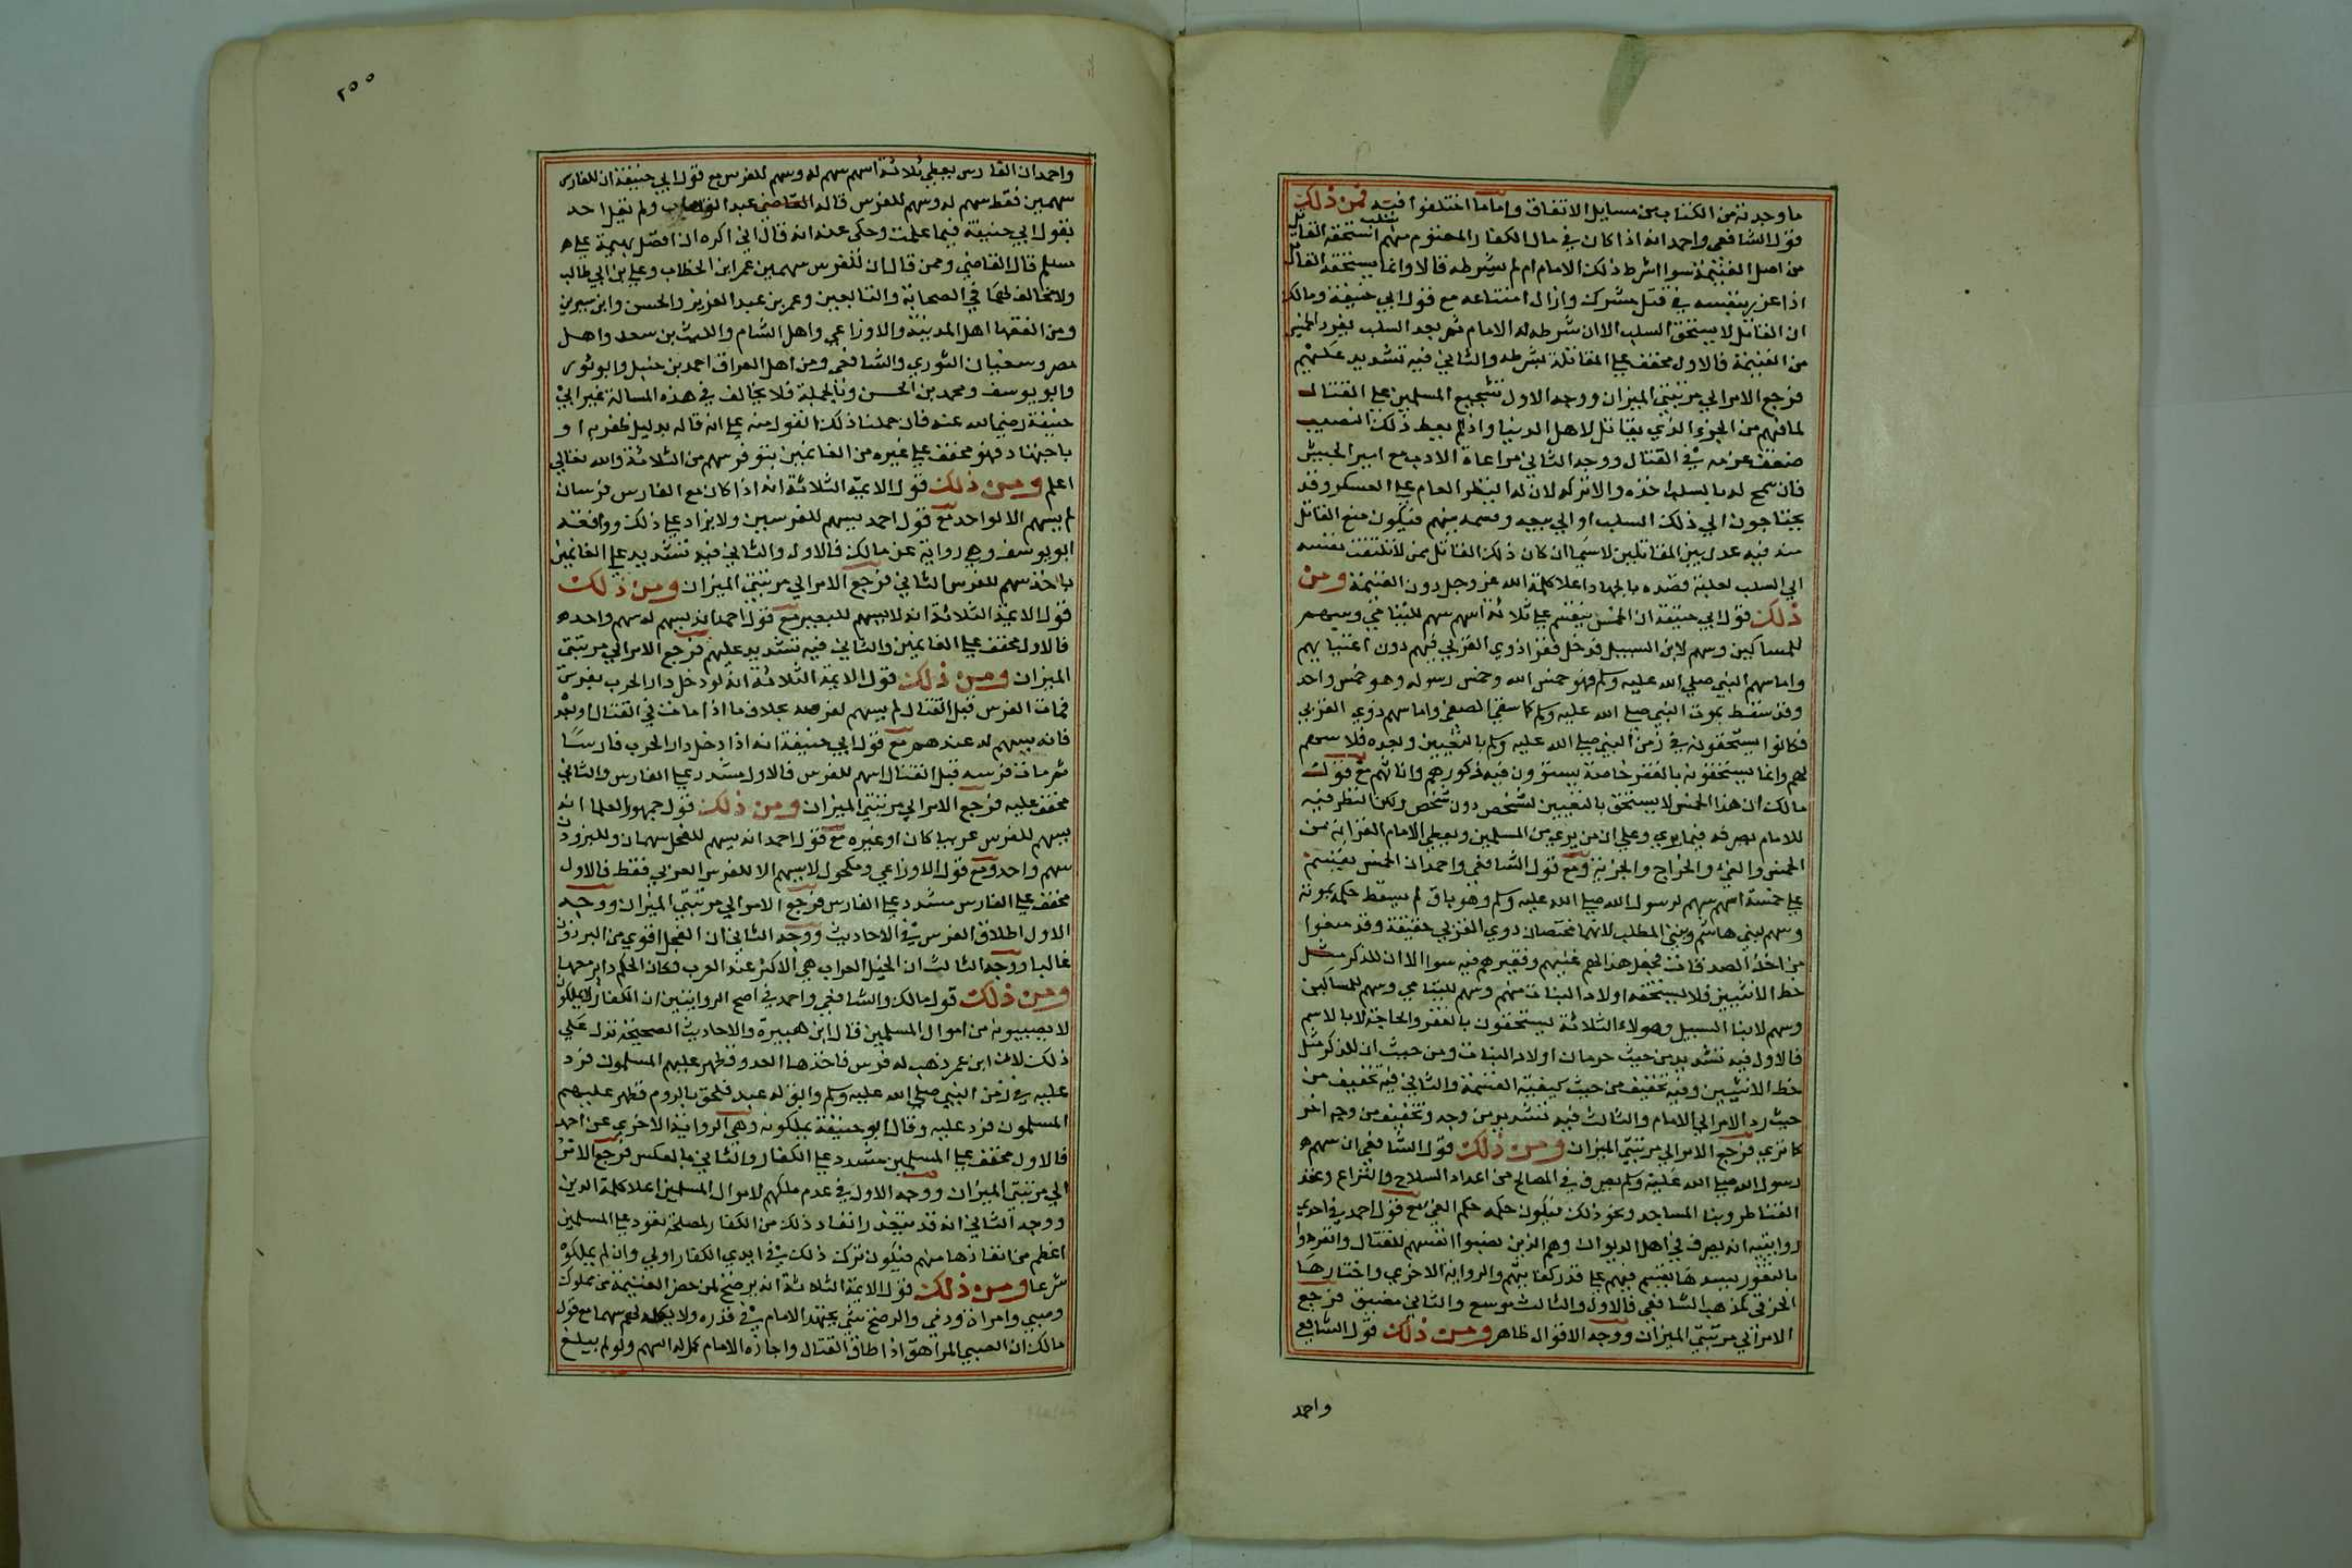 ما وجدته من الكتاب من مسايل الاتفاق واما ما اختلفوا فيه فمن ذلك
قول الشافعي واحمد انه اذا كان في مال الكفار المغنوم منهم سلب استحقه القاتل
من اصل الغنيمة سوا اشرط ذلك الامام ام لم يشرطه قالا وانما يستحقه القاتل
اذا عزر بنفسه في قتل مشرك وازال امتناعه مع قول ابي حنيفة ومالك
ان القاتل لا يستحق السلب الا ان شرطه له الامام ثم بعد السلب يفرد الخمس
من الغنيمة فالاول مخفف علي المقاتلة بشرطه والثاني فيه تشديد عليهم
فرجع الامر الي مرتبتي الميزان ووجه الاول تشجيع المسلمين علي القتال
لما فيهم من الجزء الذي يقاتل لاهل الدنيا واذا لم يعط ذلك النصيب
ضعف عزمه في القتال ووجه الثاني مراعاة الادب مع امير الجيش
فان سمح له بالسلب اخذه والا تركه لان له النظر العام علي العسكر وقد
يحتاجون الي ذلك السلب او الي بيعه وقسمه بينهم فيكون منع القاتل
منه فيه عدل بين المقاتلين لا سيما ان كان ذلك القاتل ممن لا تلتفت نفسه
الي السلب لغلبة قصده بالجهاد اعلا كلمة الله عز وجل دون الغنيمة ومن
ذلك قول ابي حنيفة ان الخمس يقسم علي ثلاثة اسهم سهم لليتامي وسهم
للمساكين وسهم لابن السبيل فدخل فقرا ذوي القربي فيهم دون اغنيايهم
واما سهم النبي صلي الله عليه وسلم فهو خمس الله وخمس رسوله وهو خمس واحد
وقد سقط بموت النبي صلي الله عليه وسلم كما سقط الصفي واما سهم ذوي القربي
فكانوا يستحقونه في زمن النبي صلي الله عليه وسلم بالتعيين وبعده فلا سهم
لهم وانما يستحقونه بالفقر خاصة يستوون فيه ذكورهم واناثهم مع قول
مالك ان هذا الخمس لا يستحق بالتعيين لشخص دون شخص ولكن النظر فيه
للامام يصرفه فيما يري وعلي ان من يري من المسلمين ويعطي الامام القرابة من
الخمس والفيء والخراج والجزية ومع قول الشافعي واحمد ان الخمس يقسم
علي خمسة اسهم سهم لرسول الله صلي الله عليه وسلم وهو باق لم يسقط حكمه بموته
وسهم لبني هاشم وبني المطلب لانهما مختصان بذوي القربي حقيقة وقد منعوا
من اخذ الصدقات فجعل هذا لهم غنيهم وفقيرهم فيه سوا الا ان للذكر مثل
حظ الانثيين فلا يستحقه اولاد البنات منهم وسهم لليتامي وسهم للمساكين
وسهم لابنا السبيل وهولاء الثلاثة يستحقون بالفقر والحاجة لا بالاسم
فالاول فيه تشديد من حيث حرمان اولاد البنات ومن حيث ان للذكر مثل
حظ الانثيين وفيه تخفيف من حيث كيفية القسمة والثاني فيه تخفيف من
حيث رد الامر الي الامام والثالث فيه تشديد من وجه وتخفيف من وجه اخر
كما تري فرجع الامر الي مرتبتي الميزان ومن ذلك قول الشافعي ان سهم
رسول الله صلي الله عليه وسلم يصرف في المصالح من اعداد السلاح والكراع وعقد
القناطر وبنا المساجد ونحو ذلك فيكون حكمه حكم الفي مع قول احمد في احدي
روايتيه انه يصرف في اهل الديوان وهم الذين نصبوا انفسهم للقتال وانفردوا
بالثغور يسدها يقسم فيهم علي قدر كفايتهم والرواية الاخري واختارها
الخرقي كمذهب الشافعي فالاول والثالث موسع والثاني مضيق فرجع
الامر الي مرتبتي الميزان ووجه الاقوال ظاهر ومن ذلك قول الشافعي
واحمد
٢٥٥
واحمد ان الفارس يعطي ثلاثة اسهم سهم له وسهم للفرس مع قول ابي حنيفة ان للفارس
سهمين فقط سهم له وسهم للفرس قال القاضي عبد الوهاب ولم يقل احد
بقول ابي حنيفة فيما علمت وحكي عنه انه قال اني اكره ان افضل بهيمة علي
مسلم قال القاضي وممن قال ان للفرس سهمين عمر ابن الخطاب وعلي بن ابي طالب
ولا مخالف لهما في الصحابة والتابعين وعمر بن عبد العزيز والحسن وابن سيرين
ومن الفقها اهل المدينة والاوزاعي واهل الشام والليث بن سعد واهل
مصر وسفيان الثوري والشافعي ومن اهل العراق احمد بن حنبل وابو ثور
وابو يوسف ومحمد بن الحسن وبالجملة فلا يخالف في هذه المسالة غير ابي
حنيفة رضي الله عنه فان حملنا ذلك القول منه علي انه قاله بدليل ظفر به او
باجتهاد فهو مخفف علي غيره من الغانمين بتوفر سهم من الثلاثة والله تعالي
اعلم ومن ذلك قول الايمة الثلاثة انه اذا كان مع الفارس فرسان
لم يسهم الا لواحد مع قول احمد يسهم للفرسين ولا يزاد علي ذلك ووافقه
ابو يوسف وهي رواية عن مالك فالاول والثاني فيه تشديد علي الغانمين
باخذ سهم للفرس الثاني فرجع الامر الي مرتبتي الميزان ومن ذلك
قول الايمة الثلاثة انه لا يسهم للبعير مع قول احمد انه يسهم له سهم واحد
فالاول مخفف علي الغانمين والثاني فيه تشديد عليهم فرجع الامر الي مرتبتي
الميزان ومن ذلك قول الايمة الثلاثة انه لو دخل دار الحرب بفرس
فمات الفرس قبل القتال لم يسهم لفرسه بخلاف ما اذا مات في القتال او بعد
فانه يسهم له عندهم مع قول ابي حنيفة انه اذا دخل دار الحرب فارسا
ثم مات فرسه قبل القتال اسهم للفرس فالاول مشدد علي الفارس والثاني
مخفف عليه فرجع الامر الي مرتبتي الميزان ومن ذلك قول جمهور العلما انه
يسهم للفرس عربيا كان او غيره مع قول احمد انه يسهم للفحل سهمان وللبرذون
سهم واحد ومع قول الاوزاعي ومكحول لا يسهم الا للفرس العربي فقط فالاول
مخفف علي الفارس مشدد علي الفارس فرجع الامر الي مرتبتي الميزان ووجه
الاول اطلاق الفرس في الاحاديث ووجه الثاني ان الفحل اقوي من البرذون
غالبا ووجه الثالث ان الخيل العراب هي الاكثر عند العرب فكان الحكم داير معها
ومن ذلك قول مالك والشافعي واحمد في اصح الروايتين ان الكفار لا يملكون
لا يصيبونه من اموال المسلمين قال ابن هبيرة والاحاديث الصحيحة تدل علي
ذلك لان ابن عمر ذهب له فرس فاخذها العدو فظهر عليهم المسلمون فرد
عليه في زمن النبي صلي الله عليه وسلم وابق له عبد فلحق بالروم فظهر عليهم
المسلمون فرد عليه وقال ابو حنيفة يملكونه وهي الرواية الاخري عن احمد
فالاول مخفف علي المسلمين مشدد علي الكفار والثاني بالعكس فرجع الامر
الي مرتبتي الميزان ووجه الاول في عدم ملكهم لاموال المسلمين اعلا كلمة الدين
ووجه الثاني انه قد يتعذر انقاذ ذلك من الكفار لمصلحة تعود علي المسلمين
اعظم من انقاذها منهم فيكون ترك ذلك في ايدي الكفار اولي وان لم يملكوه
شرعا ومن ذلك قول الايمة الثلاثة انه يرضخ لمن حضر الغنيمة من مملوك
وصبي وامراة وذمي والرضخ شي يجتهد الامام في قدره ولا يكمل لهم سهما مع قول
مالك ان الصبي المراهق اذا طاق القتال واجازه الامام كمل له السهم ولو لم يبلغ